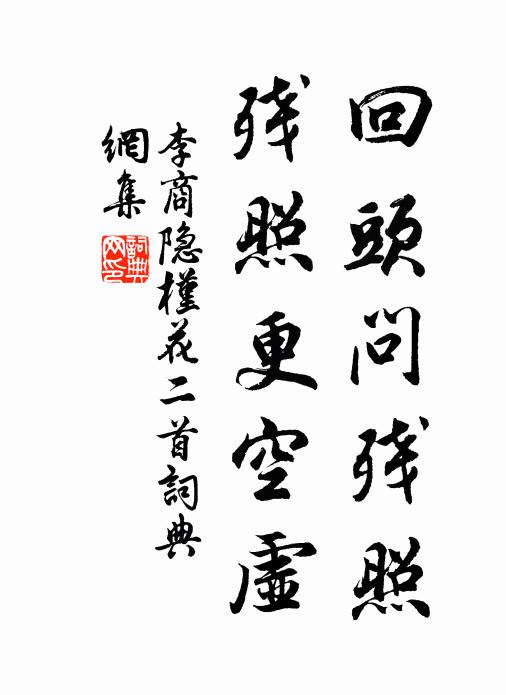 回頭問残照
残照更空虛
李商隐槿花二首詞典
網集
詞典
网印